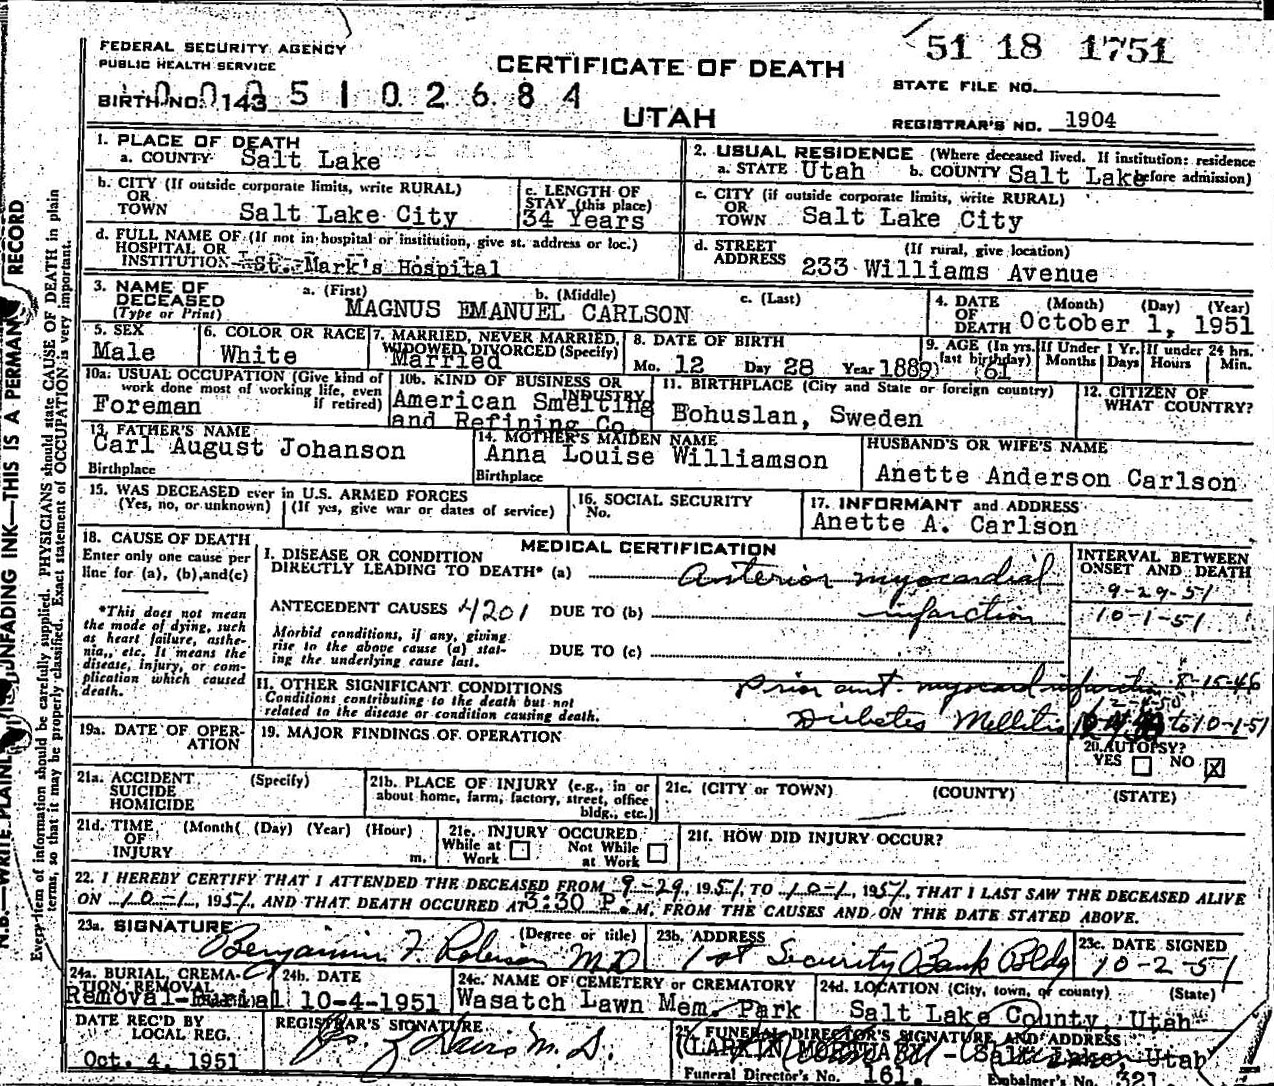 FEDERAL SECURITY AGENCY
PUBLIC HEALTH SERVICE
BIRTH NO. 143 5 1 0 2 6 8 4
CERTIFICATE OF DEATH
UTAH
51 18 1751
STATE FILE NO.
REGISTRAR'S NO. 1904
1. PLACE OF DEATH
a. COUNTY Salt Lake
2. USUAL RESIDENCE (Where deceased lived. If institution: residence before admission)
a. STATE Utah b. COUNTY Salt Lake
b. CITY (If outside corporate limits, write RURAL)
OR
TOWN Salt Lake City
c. LENGTH OF
STAY (this place)
34 Years
c. CITY (if outside corporate limits, write RURAL)
OR
TOWN Salt Lake City
d. FULL NAME OF (If not in hospital or institution, give st. address or loc.)
HOSPITAL OR
INSTITUTION St. Mark's Hospital
d. STREET (If rural, give location)
ADDRESS 233 Williams Avenue
3. NAME OF
DECEASED
(Type or Print)
a. (First) b. (Middle) c. (Last)
MAGNUS EMANUEL CARLSON
4. DATE (Month) (Day) (Year)
OF
DEATH October 1, 1951
5. SEX
Male
6. COLOR OR RACE
White
7. MARRIED, NEVER MARRIED,
WIDOWED, DIVORCED (Specify)
Married
8. DATE OF BIRTH
Mo. 12 Day 28 Year 1889
9. AGE (In yrs. last birthday) 61
If Under 1 Yr. Months Days
If under 24 hrs. Hours Min.
10a. USUAL OCCUPATION (Give kind of
work done most of working life, even
if retired)
Foreman
10b. KIND OF BUSINESS OR
INDUSTRY
American Smelting
and Refining Co.
11. BIRTHPLACE (City and State or foreign country)
Bohuslan, Sweden
12. CITIZEN OF
WHAT COUNTRY?
13. FATHER'S NAME
Carl August Johanson
Birthplace
14. MOTHER'S MAIDEN NAME
Anna Louise Williamson
Birthplace
HUSBAND'S OR WIFE'S NAME
Anette Anderson Carlson
15. WAS DECEASED ever in U.S. ARMED FORCES
(Yes, no, or unknown) (If yes, give war or dates of service)
16. SOCIAL SECURITY
No.
17. INFORMANT and ADDRESS
Anette A. Carlson
18. CAUSE OF DEATH
Enter only one cause per
line for (a), (b), and (c)
*This does not mean
the mode of dying, such
as heart failure, asthe-
nia, etc. It means the
disease, injury, or com-
plication which caused
death.
MEDICAL CERTIFICATION
I. DISEASE OR CONDITION
DIRECTLY LEADING TO DEATH* (a) Anterior myocardial
ANTECEDENT CAUSES 4201 DUE TO (b) infarction
Morbid conditions, if any, giving
rise to the above cause (a) stat-
ing the underlying cause last.
DUE TO (c)
INTERVAL BETWEEN
ONSET AND DEATH
9-29-51
10-1-51
II. OTHER SIGNIFICANT CONDITIONS
Conditions contributing to the death but not
related to the disease or condition causing death.
Prior ant. myocard infarction 8-15-46
Diabetes Mellitis to 10-1-51
19a. DATE OF OPER-
ATION
19. MAJOR FINDINGS OF OPERATION
20. AUTOPSY?
YES ☐ NO ☒
21a. ACCIDENT (Specify)
SUICIDE
HOMICIDE
21b. PLACE OF INJURY (e.g., in or
about home, farm, factory, street, office
bldg., etc.)
21c. (CITY or TOWN) (COUNTY) (STATE)
21d. TIME (Month) (Day) (Year) (Hour)
OF
INJURY m.
21e. INJURY OCCURED
While at Work ☐ Not While at Work ☐
21f. HOW DID INJURY OCCUR?
22. I HEREBY CERTIFY THAT I ATTENDED THE DECEASED FROM 9-29, 1951, TO 10-1, 1951, THAT I LAST SAW THE DECEASED ALIVE
ON 10-1, 1951, AND THAT DEATH OCCURED AT 3:30 P.M, FROM THE CAUSES AND ON THE DATE STATED ABOVE.
23a. SIGNATURE (Degree or title)
Benjamin F Roberson M.D
23b. ADDRESS
1st Security Bank Bldg
23c. DATE SIGNED
10-2-51
24a. BURIAL, CREMA-
TION REMOVAL
Removal-Burial
24b. DATE
10-4-1951
24c. NAME OF CEMETERY or CREMATORY
Wasatch Lawn Mem. Park
24d. LOCATION (City, town, or county) (State)
Salt Lake County, Utah
DATE REC'D BY
LOCAL REG.
Oct. 4, 1951
REGISTRAR'S SIGNATURE
M.D.
25. FUNERAL DIRECTOR'S SIGNATURE AND ADDRESS
(LARKIN MORTUARY - Salt Lake, Utah
Funeral Director's No. 161. Embalmer's No. 321
N.B.—WRITE PLAINLY UNFADING INK—THIS IS A PERMANENT RECORD
Every item of information should be carefully supplied. PHYSICIANS should state CAUSE OF DEATH in plain
terms, so that it may be properly classified. Exact statement of OCCUPATION is very important.